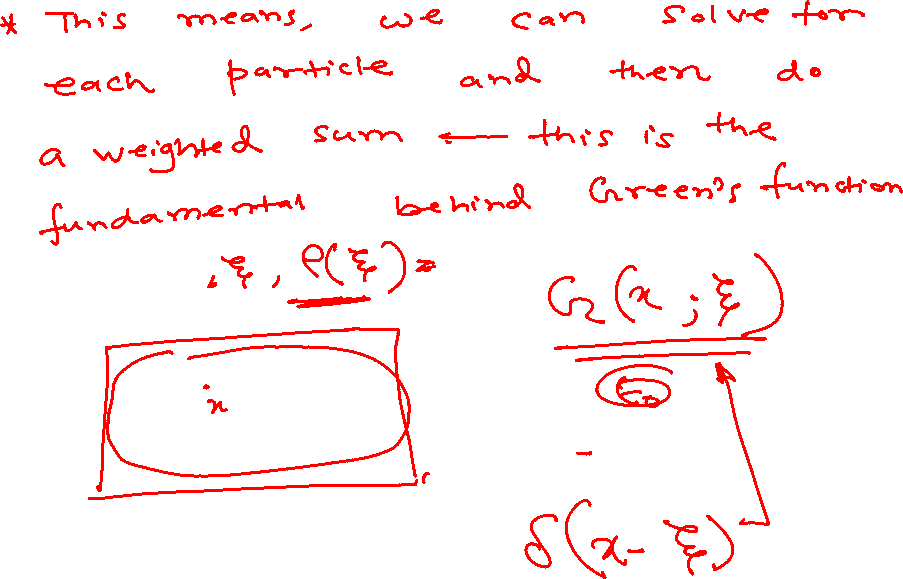 * This means, we can solve for
each particle and then do
a weighted sum ← this is the
fundamental behind Green's function
. ξ, ρ(ξ) =
G(x ; ξ)
x
ε₀
-
δ(x - ξ)